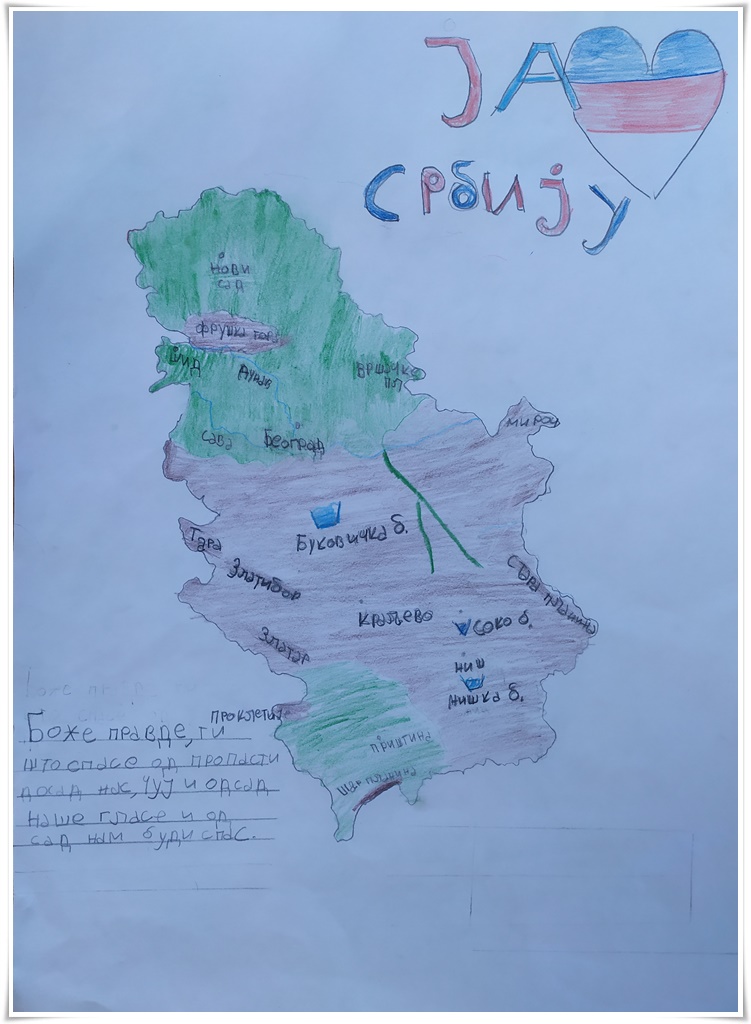 ЈА
Србију
Нови
сад
Фрушка гора
Дунав
Вршачке
Сава
Београд
Мироч
Буковичка б.
Тара
Златибор
Стара планина
Краљево
Соко б.
Златар
Ниш
Нишка б.
Проклетије
Приштина
Шар планина
Боже правде, ти
што спасе од пропасти
досад нас, чуј и одсад
наше гласе и од
сад нам буди спас.